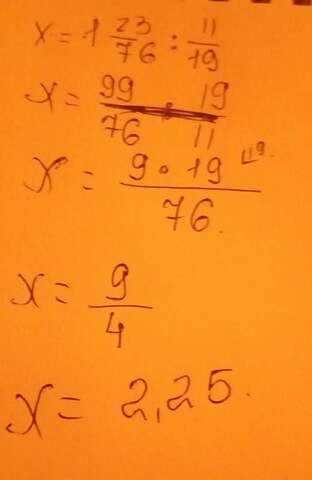 x = 1 23/76 : 11/19
x = 99/76 · 19/11
x = 9 · 19/76
x = 9/4
x = 2,25.